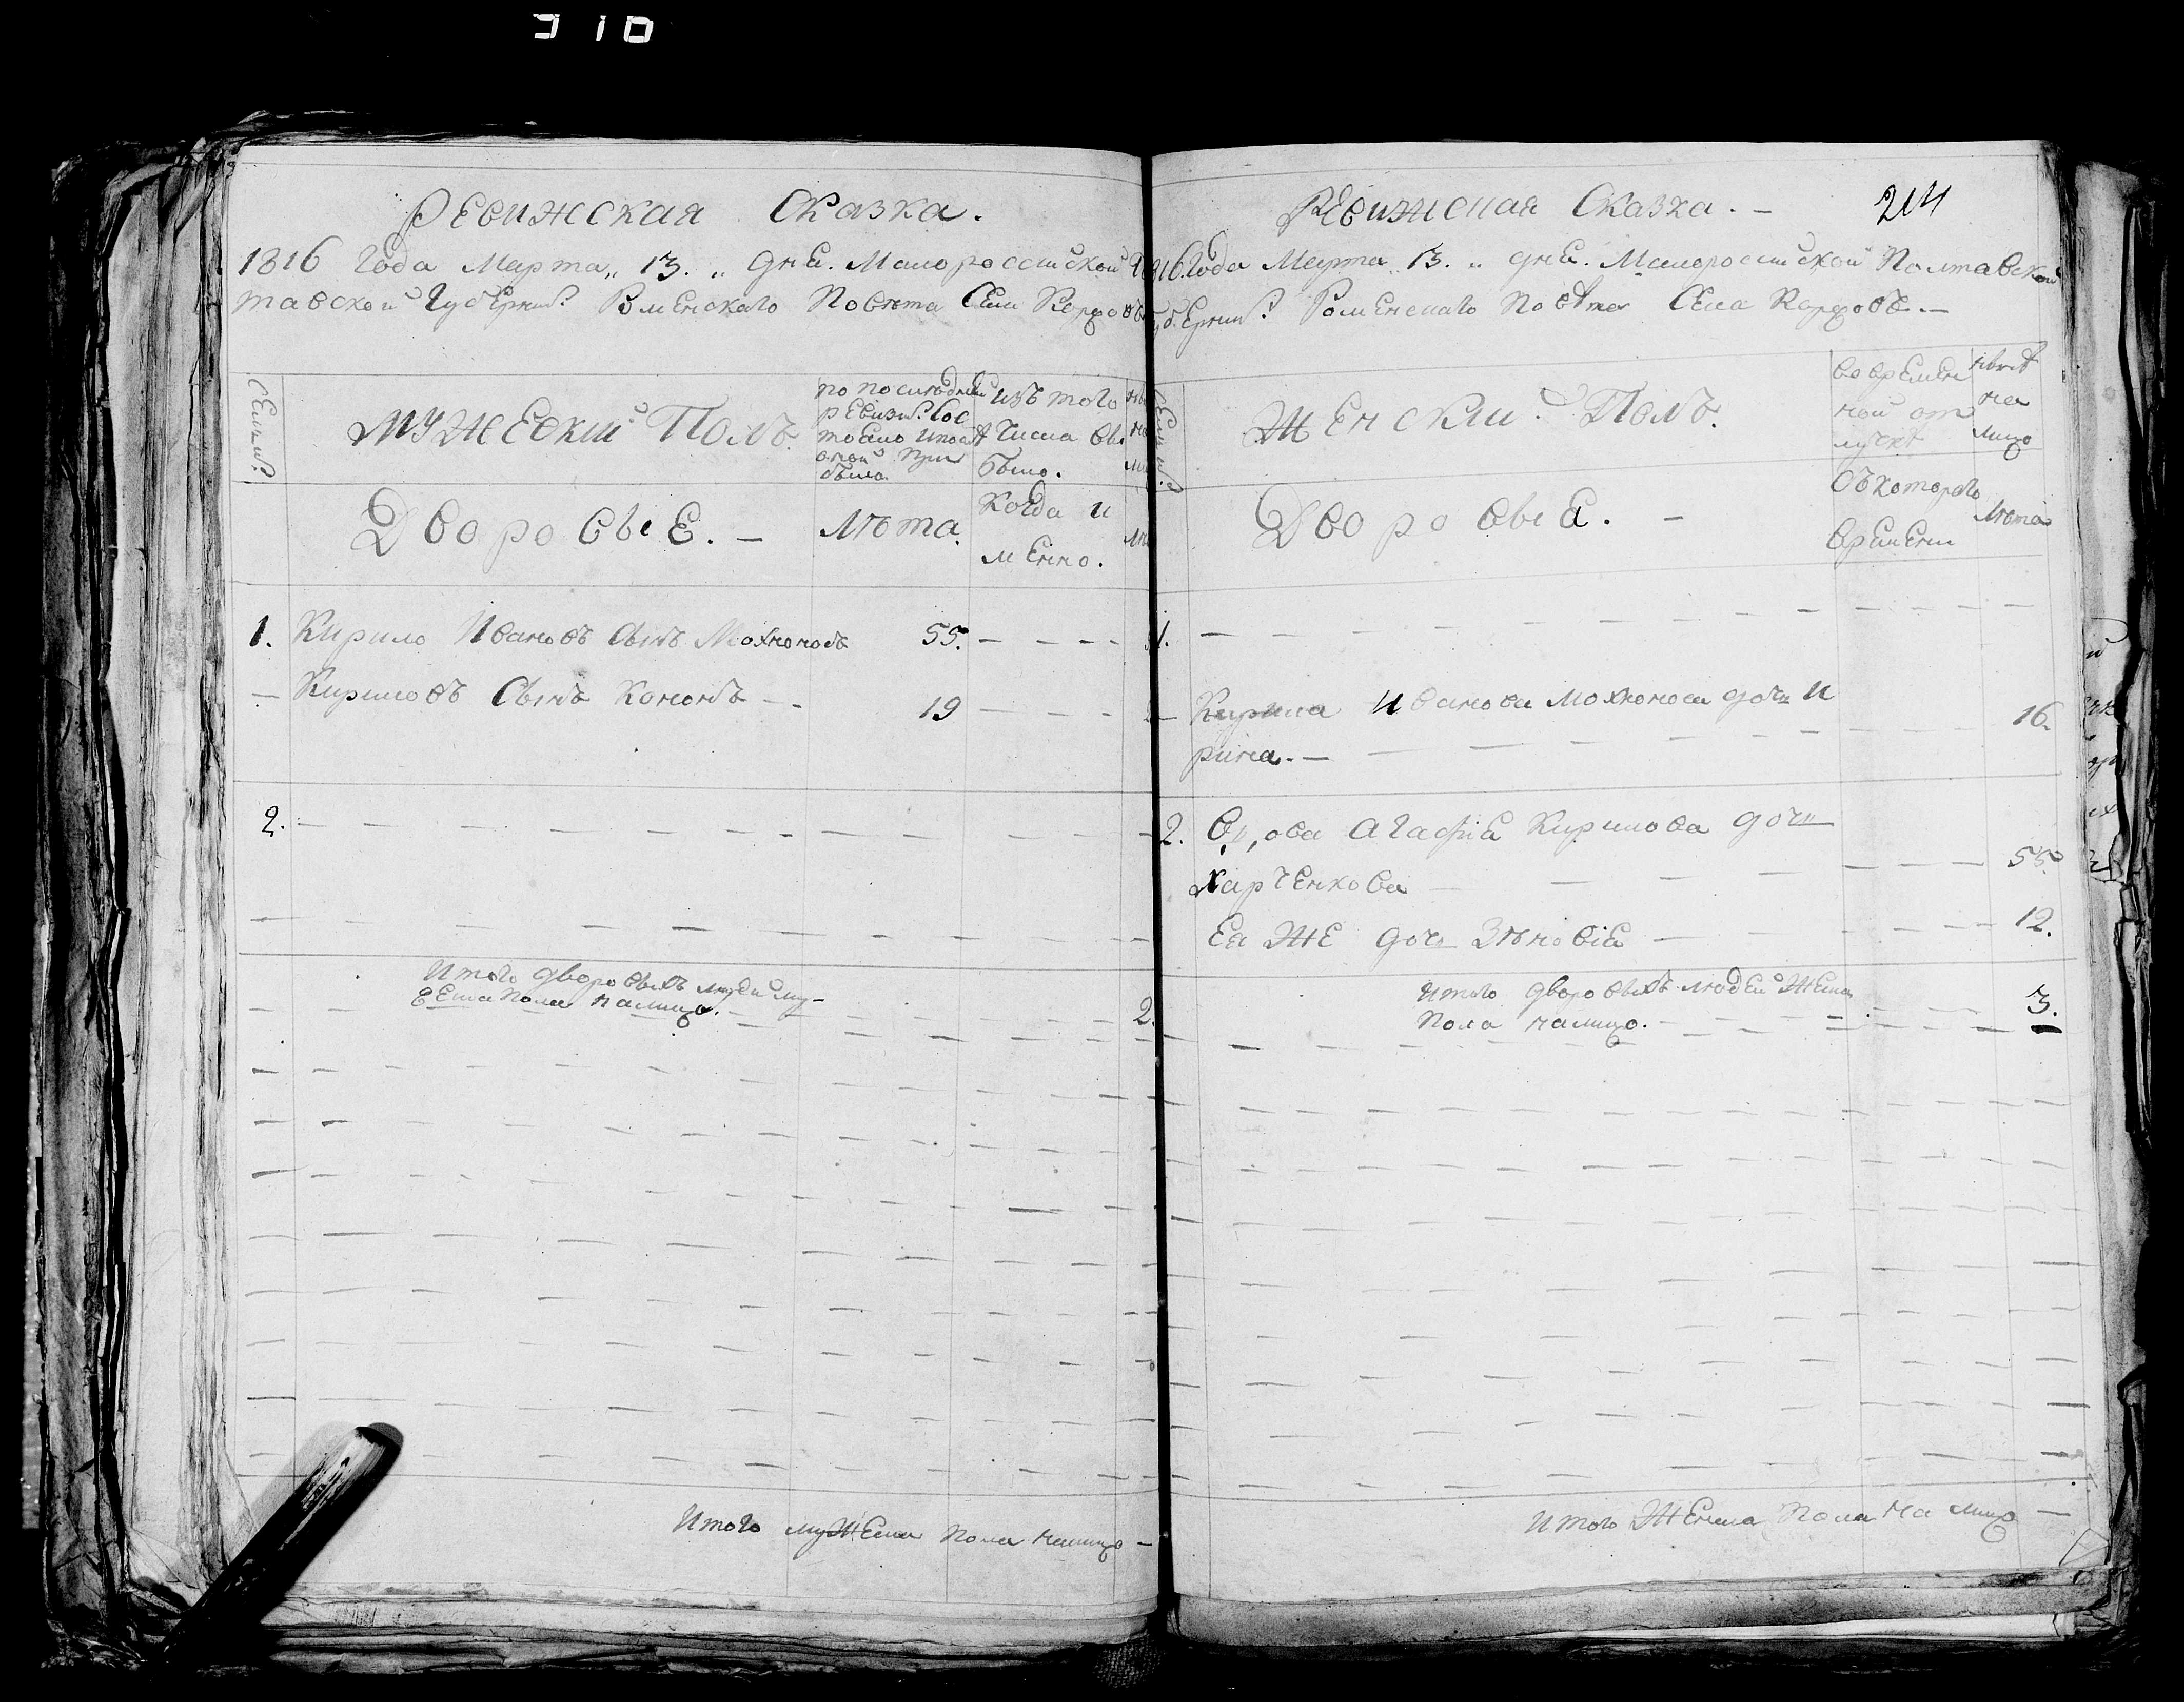 310
Ревижская Сказка.
1816 года Марта „ 13. „ дня. Малороссийской
тавской Губернии Роменского Повѣта Села
Семьи
Мужеский Полъ
по последней
ревизии сос
тояло и после
оной при
было.
изъ того
числа вы
было.
Дворовые. —
Лѣта.
Когда и
менно.
1. Кирило Ивановъ сынъ Мохноносъ 55. — — —
— Кириловъ сынъ Кононъ — 19 — — —
2. — — —
Итого дворовыхъ людей му-
ска пола налицо. 2.
Итого мужеска пола налицо —
Ревижская Сказка. — 214
1816 Года Марта „ 13. „ дня. Малороссийской Полтавской
Губернии Роменского Повѣта Села —
Семьи
Женский Полъ.
во времен
ной от
лучкѣ
нынѣ
на
лицо
Дворовые. —
съ котораго
времени
Лѣта
1. — — —
— Кирила Иванова Мохноноса дочь И
рина. — 16.
2. Вдова Агафия Кирилова дочь
Харченкова — 55.
Ея же дочь Зѣновія — 12.
Итого дворовыхъ людей женска
пола налицо. — 3.
Итого Женска Пола на лицо —